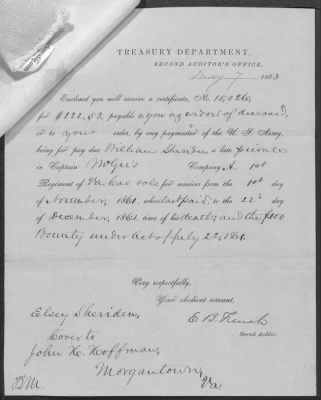 TREASURY DEPARTMENT,
SECOND AUDITOR'S OFFICE,
May 7 1863
Enclosed you will receive a certificate, No. 15,026,
for $122.53, payable to you as widow of deceased,
or to your order, by any paymaster of the U. S. Army,
being for pay due William Sheriden a late private
in Captain McGee's Company A. 1st
Regiment of Va Cav vols for service from the 1st day
of November, 1861. when last paid, to the 22d day
of December, 1861. time of his death, and the $100
Bounty under Act of July 22, 1861.
Very respectfully,
Your obedient servant,
E B French
Second Auditor.
Elsey Sheriden,
Cover to
John H. Hoffman,
Morgantown,
Va